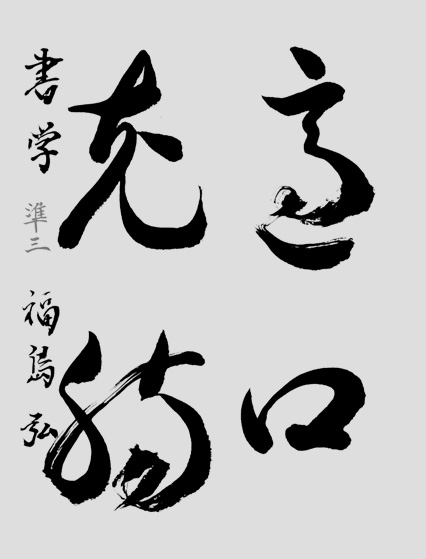 適口
充腸
書学 準三 福島弘